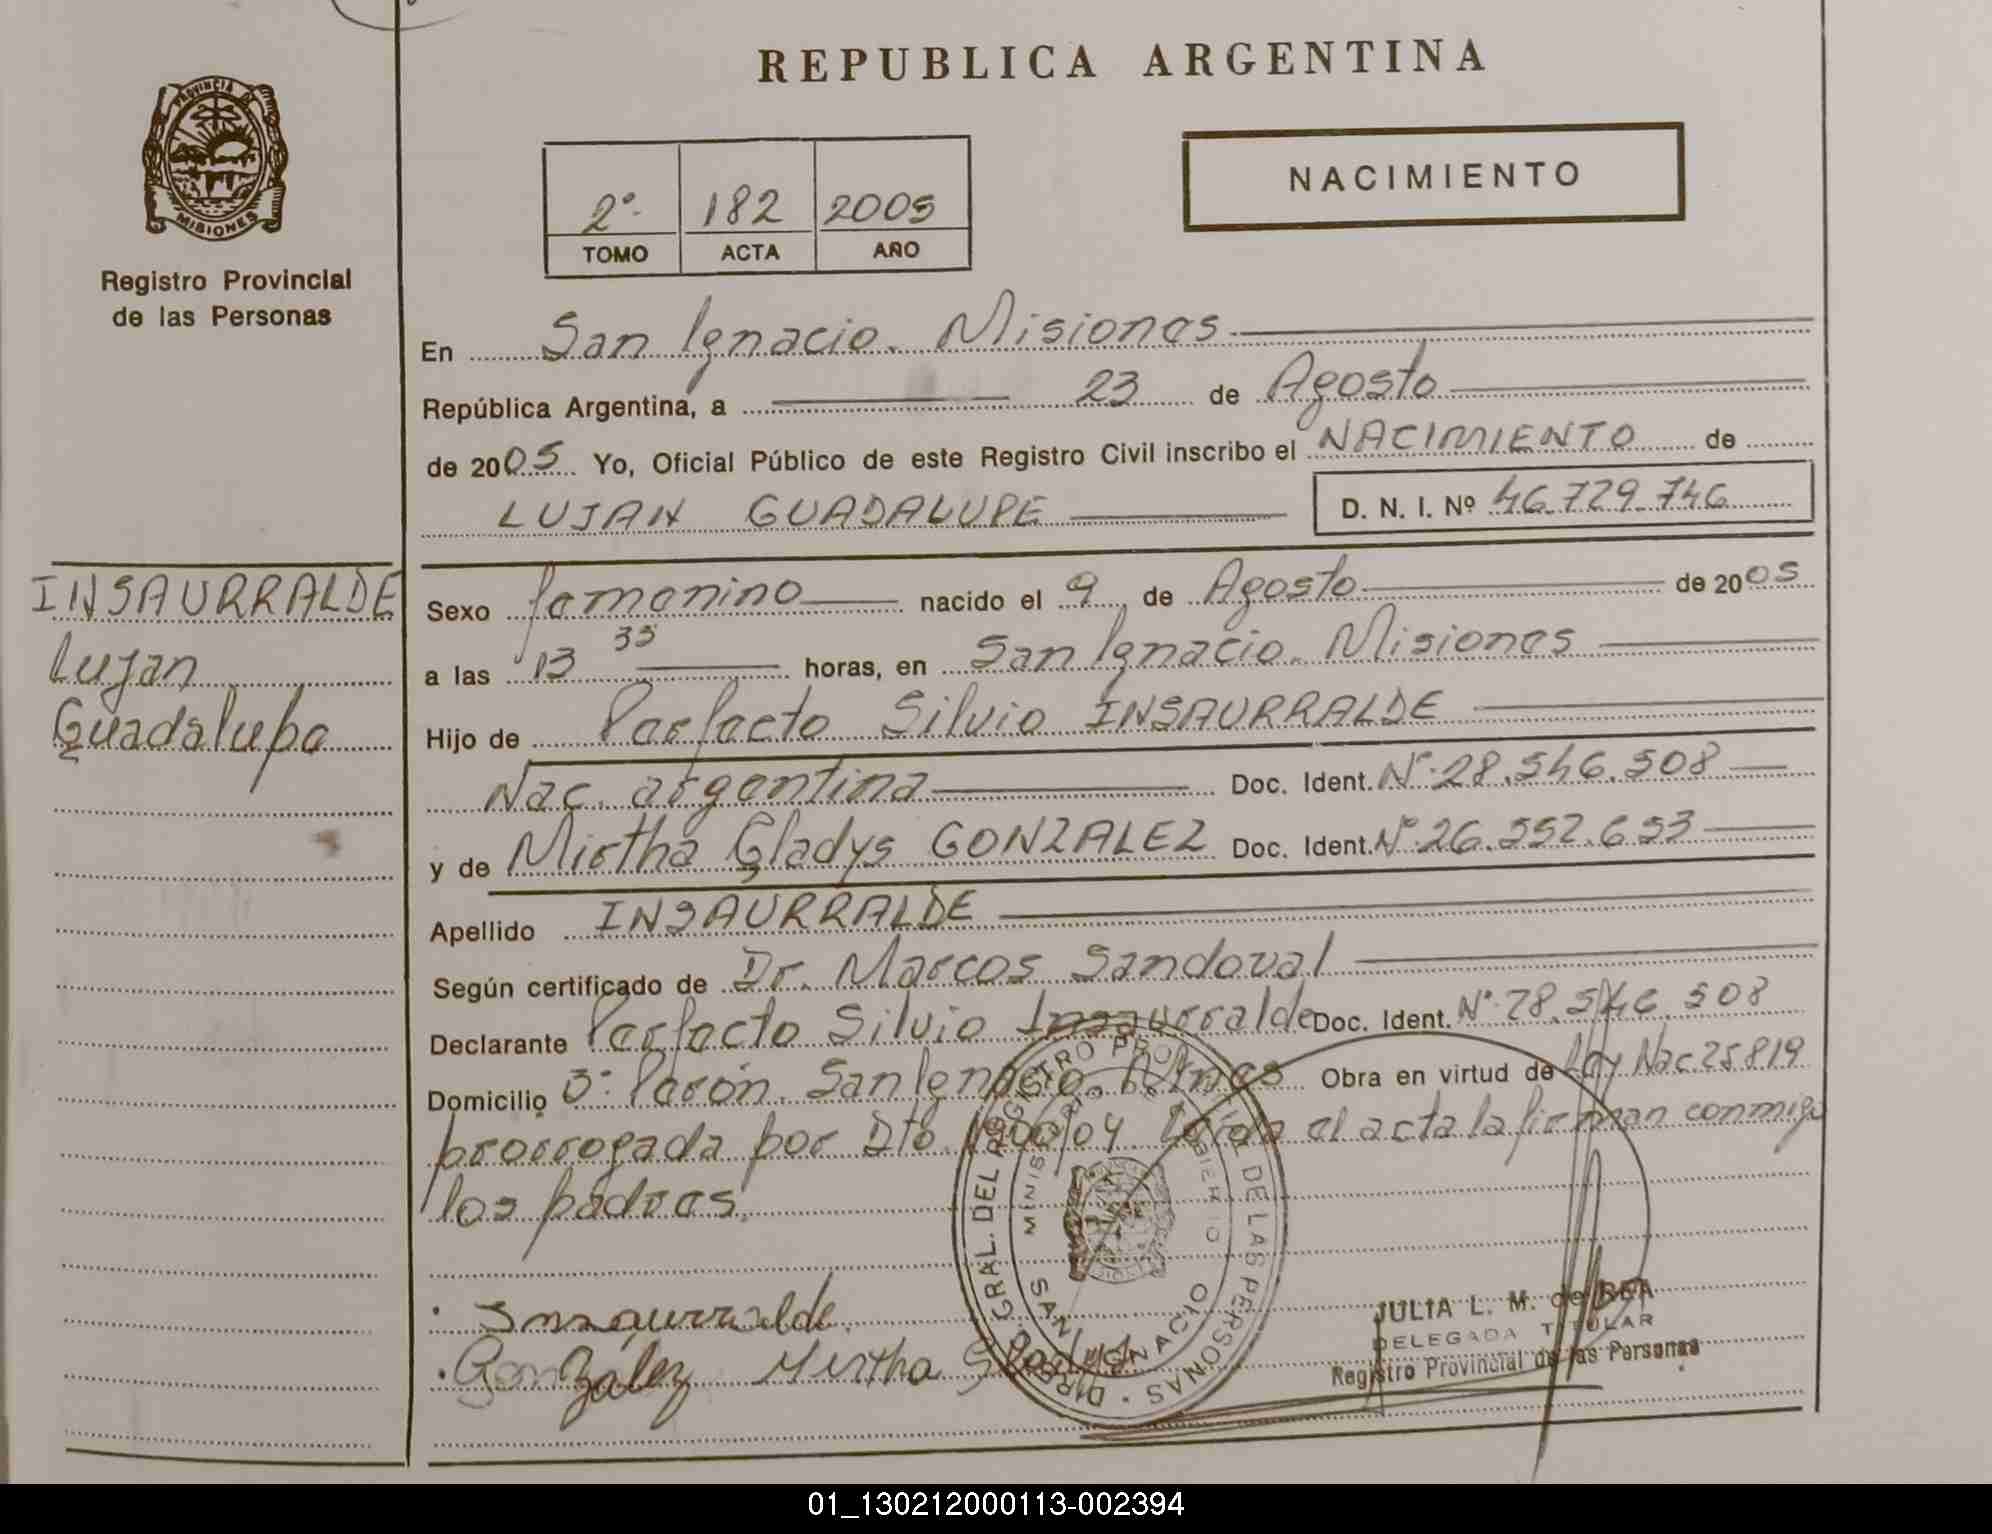 REPUBLICA ARGENTINA
PROVINCIA DE
MISIONES
Registro Provincial
de las Personas
2º 182 2005
TOMO ACTA AÑO
NACIMIENTO
En San Ignacio. Misiones
República Argentina, a 23 de Agosto
de 2005 Yo, Oficial Público de este Registro Civil inscribo el NACIMIENTO de
LUJAN GUADALUPE D. N. I. Nº 46.729.746
INSAURRALDE
Lujan
Guadalupe
Sexo femenino nacido el 9 de Agosto de 2005
a las 13 35 horas, en San Ignacio. Misiones
Hijo de Perfecto Silvio INSAURRALDE
Nac. argentina Doc. Ident. Nº 28.546.508
y de Mirtha Gladys GONZALEZ Doc. Ident. Nº 26.552.653
Apellido INSAURRALDE
Según certificado de Dr. Marcos Sandoval
Declarante Perfecto Silvio Insaurralde Doc. Ident. Nº 28.546.508
Domicilio San Ignacio. Mnes Obra en virtud de Ley Nac 25819
prorrogada por Dto. Leida el acta la firman conmigo
los padres.
Insaurralde
González Mirtha Gladys
DIR. GRAL. DEL REGISTRO PROVINCIAL DE LAS PERSONAS
SAN IGNACIO
JULIA L. M. de BEA
DELEGADA TITULAR
Registro Provincial de las Personas
01_130212000113-002394